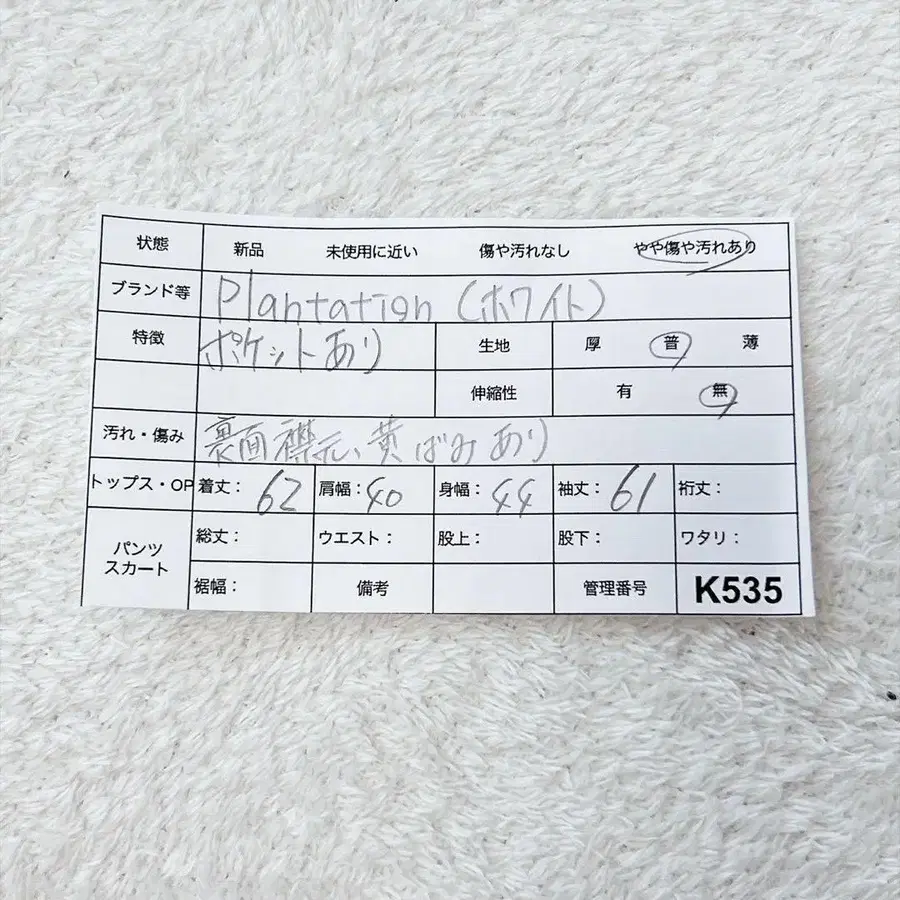 状態 新品 未使用に近い 傷や汚れなし やや傷や汚れあり
ブランド等 Plantation (ホワイト)
特徴 ポケットあり 生地 厚 普 薄
伸縮性 有 無
汚れ・傷み 裏面襟元、黄ばみあり
トップス・OP 着丈: 62 肩幅: 40 身幅: 44 袖丈: 61 裄丈:
パンツ スカート 総丈: ウエスト: 股上: 股下: ワタリ:
裾幅: 備考 管理番号 K535